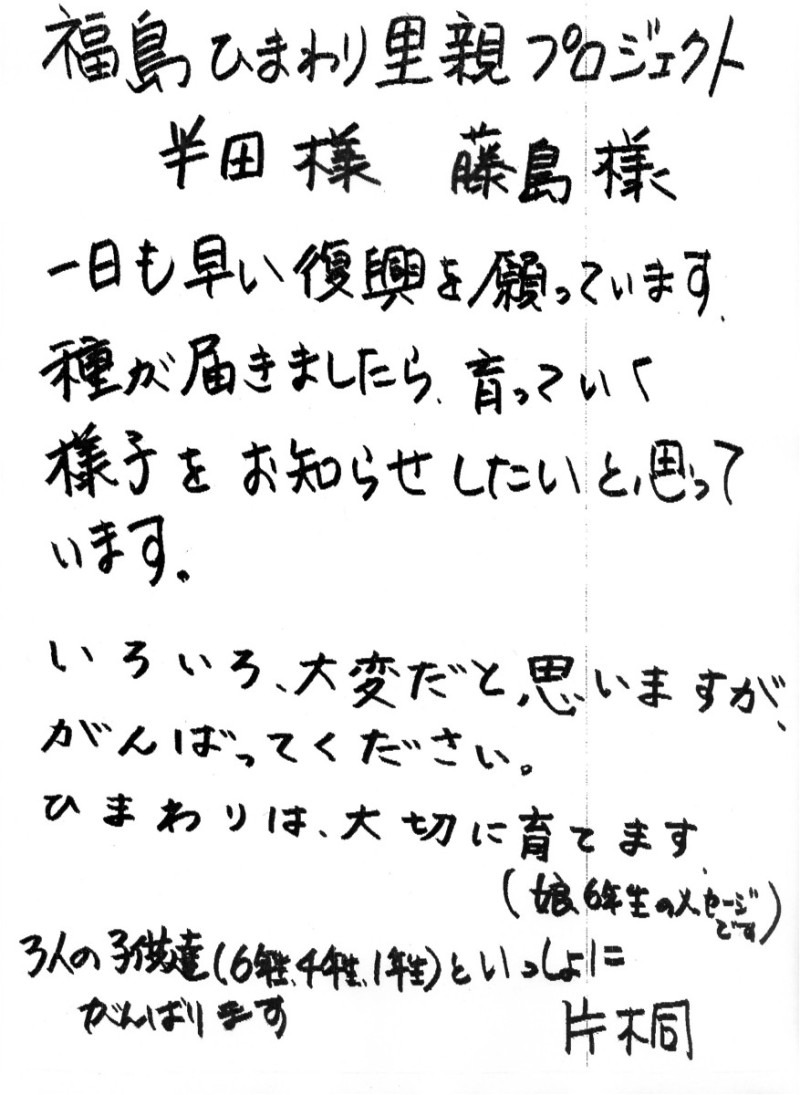 福島ひまわり里親プロジェクト
半田様　藤島様
一日も早い復興を願っています.
種が届きましたら、育っていく
様子をお知らせしたいと思って
います。
いろいろ、大変だと思いますが、
がんばってください。
ひまわりは、大切に育てます.
(娘6年生のメッセージ
です)
3人の子供達(6年生、4年生、1年生)といっしょに
がんばります
片桐